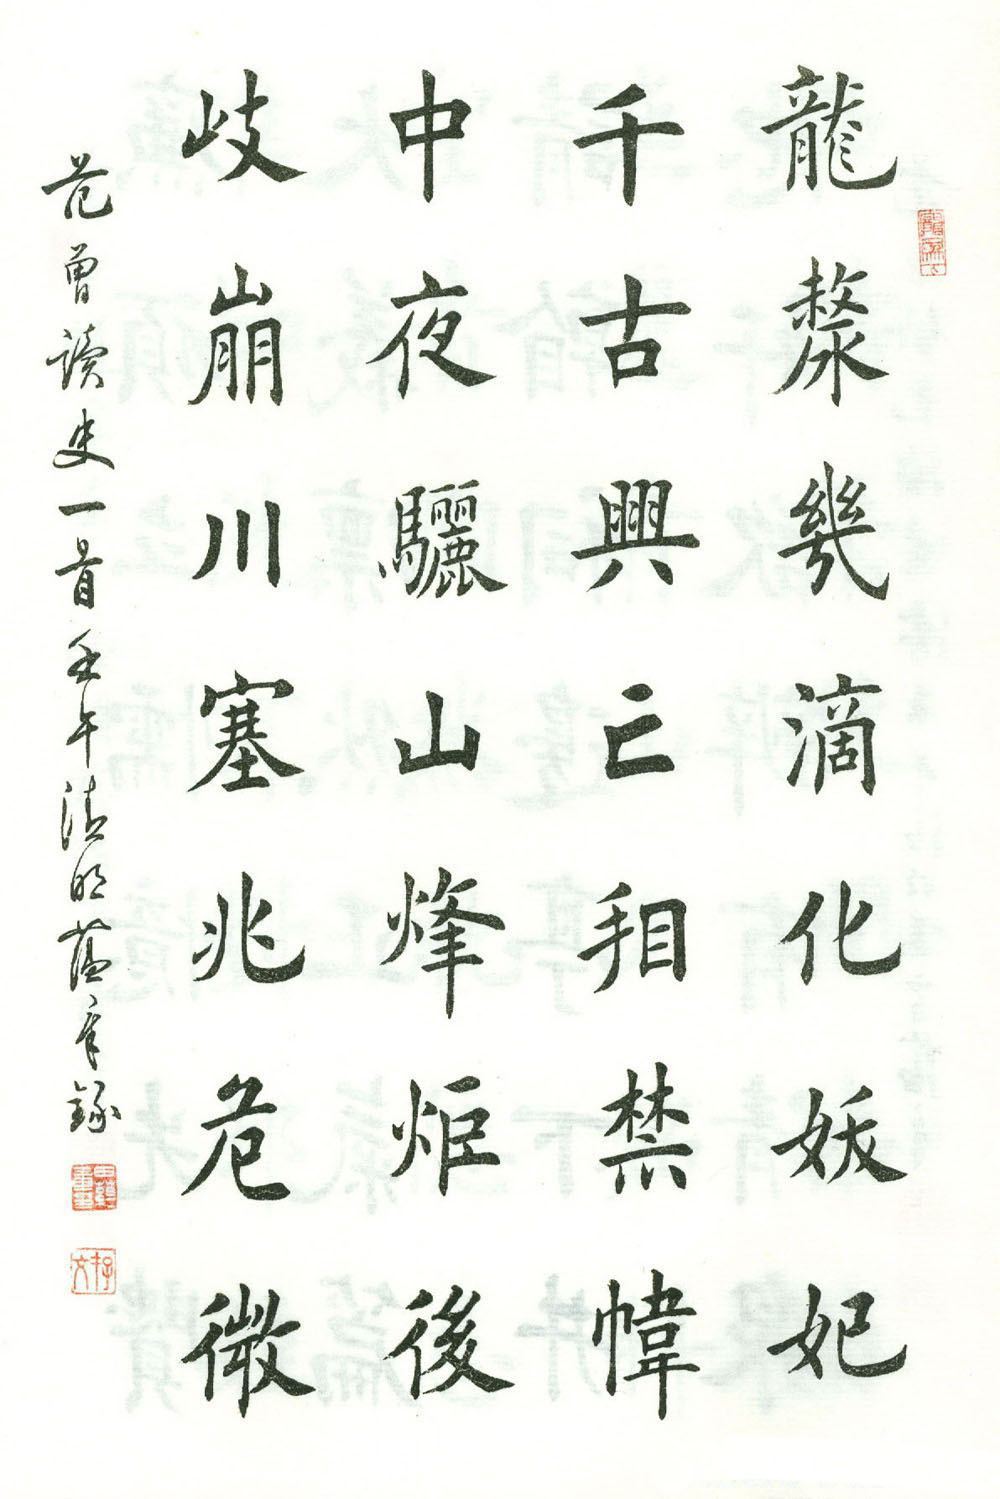 龍漦幾滴化妖妃
千古興亡相禁幃
中夜驪山烽炬後
岐崩川塞兆危微
范曾讀史一首壬午清明蘊章錄